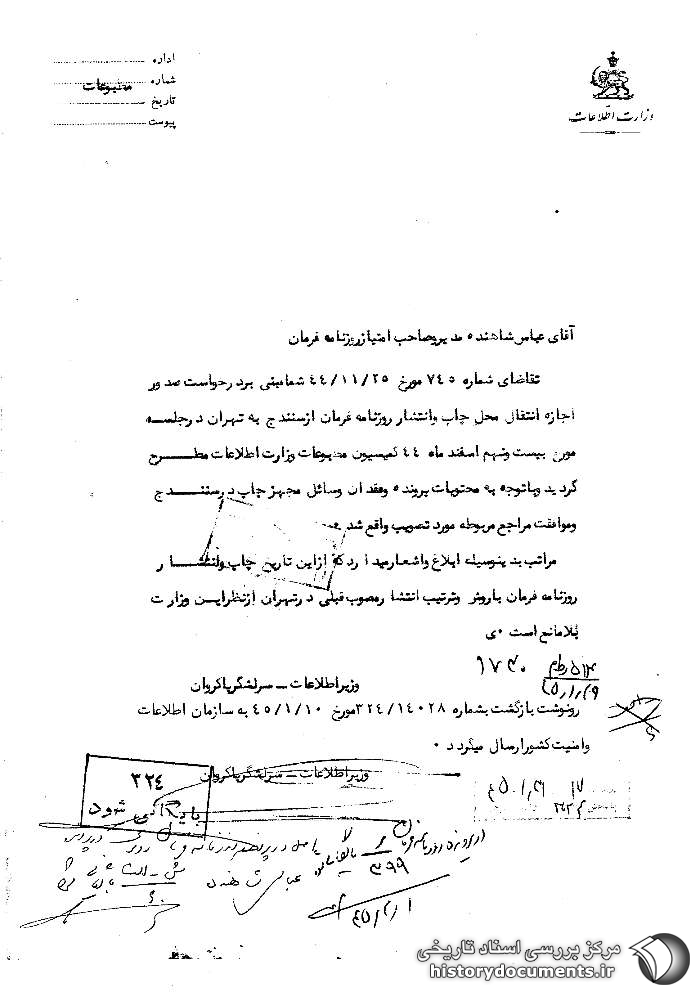 وزارت اطلاعات
اداره
شماره
مطبوعات
تاریخ
پیوست
آقای عباس شاهنده مدیر و صاحب امتیاز روزنامه فرمان
تقاضای شماره ۷۴۵ مورخ ۴۴/۱۱/۲۵ شما مبنی بر درخواست صدور
اجازه انتقال محل چاپ وانتشار روزنامه فرمان ازسنندج به تهران درجلسه
مورخ بیست ونهم اسفند ماه ۴۴ کمیسیون مطبوعات وزارت اطلاعات مطرح
گردید وباتوجه به محتویات پرونده وفقدان وسائل مجهز چاپ درسنندج
وموافقت مراجع مربوطه مورد تصویب واقع شد
مراتب بدینوسیله ابلاغ واشعارمیدارد که ازاین تاریخ چاپ وانتشار
روزنامه فرمان باروش وترتیب انتشار مصوب قبلی درتهران ازنظراین وزارت
بلامانع است ی
وزیراطلاعات – سرلشگرپاکروان
۱۷۳۰
۴۵/۱/۲۹
رونوشت بازگشت بشماره ۳۲۴/۱۴۰۲۸ مورخ ۴۵/۱/۱۰ به سازمان اطلاعات
وامنیت کشورارسال میگردد ۰
وزیراطلاعات – سرلشگرپاکروان
۳۲۴
بایگانی شود
۳۹۹
عباس شاهنده
مرکز بررسی اسناد تاریخی
historydocuments.ir